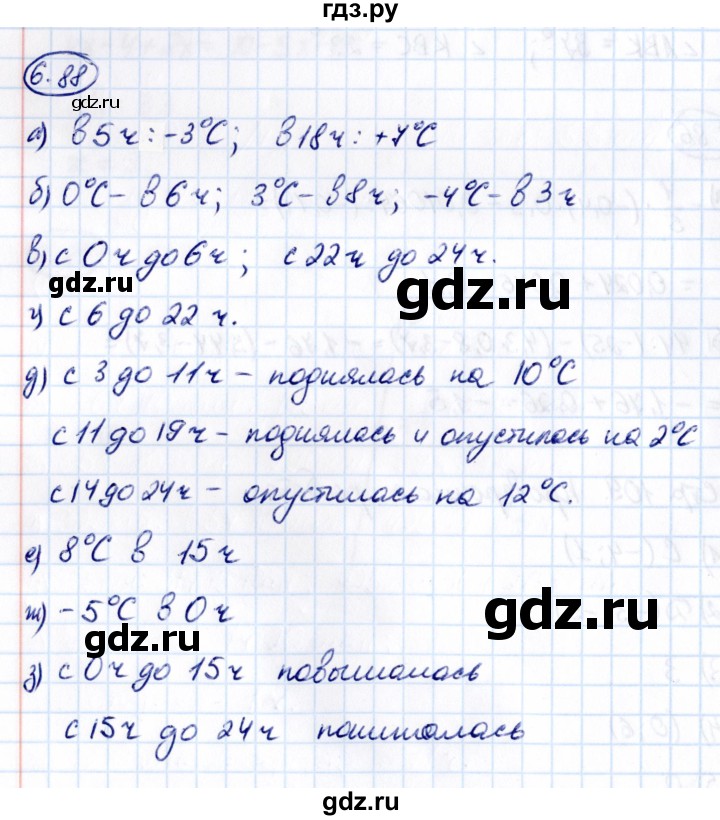 гдз.ру
6.88
а) в 5 ч: -3°C; в 18 ч: +7°C
б) 0°C - в 6 ч; 3°C - в 8 ч; -4°C - в 3 ч
в) с 0 ч до 6 ч; с 22 ч до 24 ч.
gdz.ru
gdz.ru
г) с 6 до 22 ч.
д) с 3 до 11 ч - поднялась на 10°C
с 11 до 19 ч - поднялась и опустилась на 2°C
с 14 до 24 ч - опустилась на 12°C.
е) 8°C в 15 ч
gdz.ru
ж) -5°C в 0 ч
gdz.ru
з) с 0 ч до 15 ч повышалась
с 15 ч до 24 ч понижалась
gdz.ru